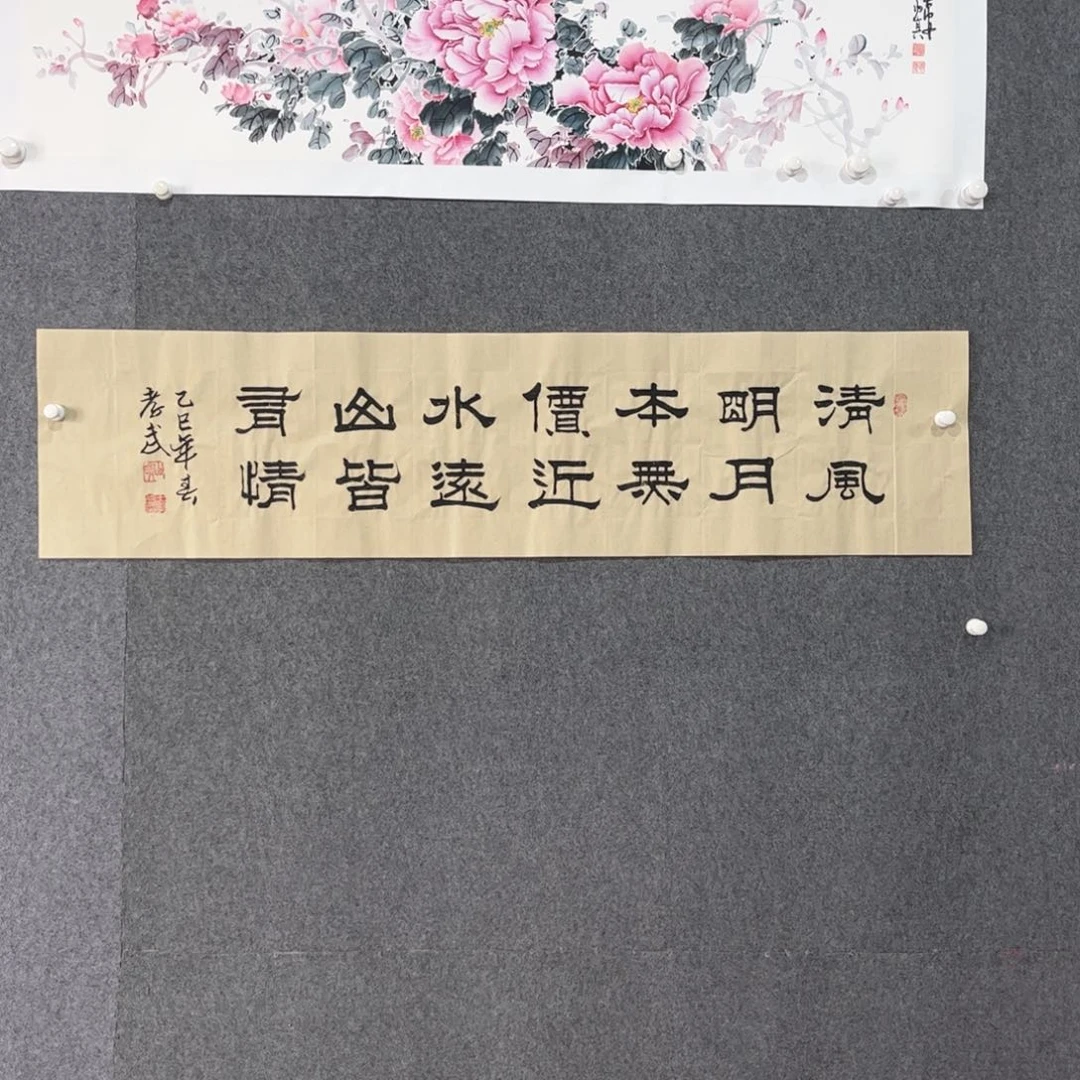 清風
明月
本無
價近
水遠
山皆
有情
乙巳年春
孝武